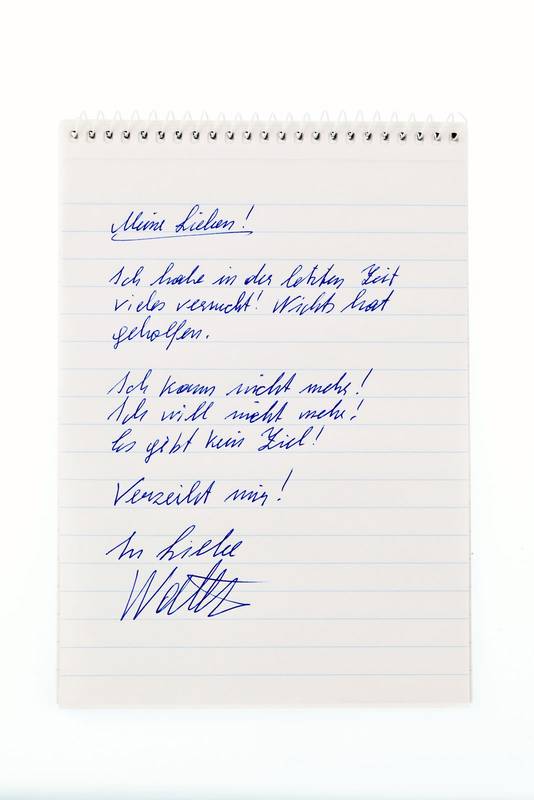 Meine Lieben!
Ich habe in der letzten Zeit
vieles versucht! Nichts hat
geholfen.
Ich kann nicht mehr!
Ich will nicht mehr!
Es gibt kein Ziel!
Verzeiht mir!
In Liebe